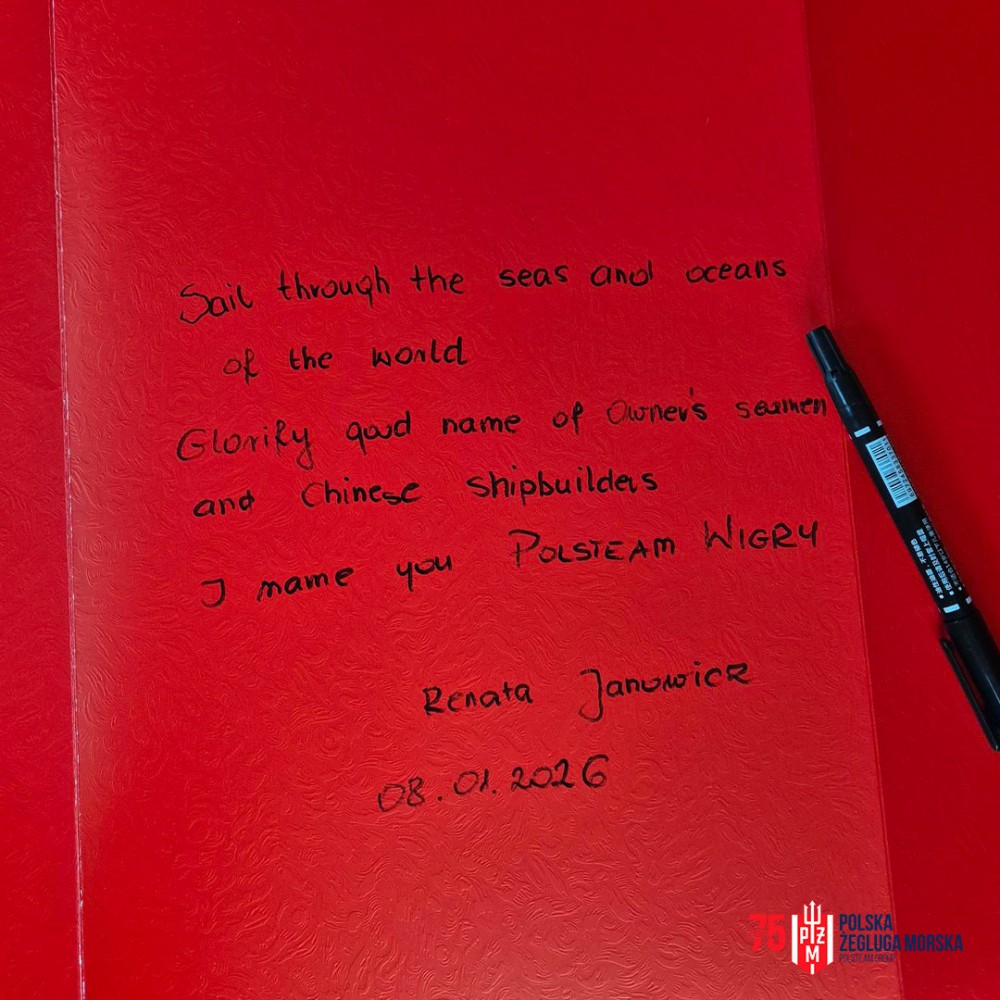 Sail through the seas and oceans
of the world
Glorify good name of Owner's seamen
and Chinese shipbuilders
I name you POLSTEAM WIGRY
Renata Janowicz
08.01.2026
75 PŻM POLSKA
ŻEGLUGA MORSKA
POLSTEAM GROUP